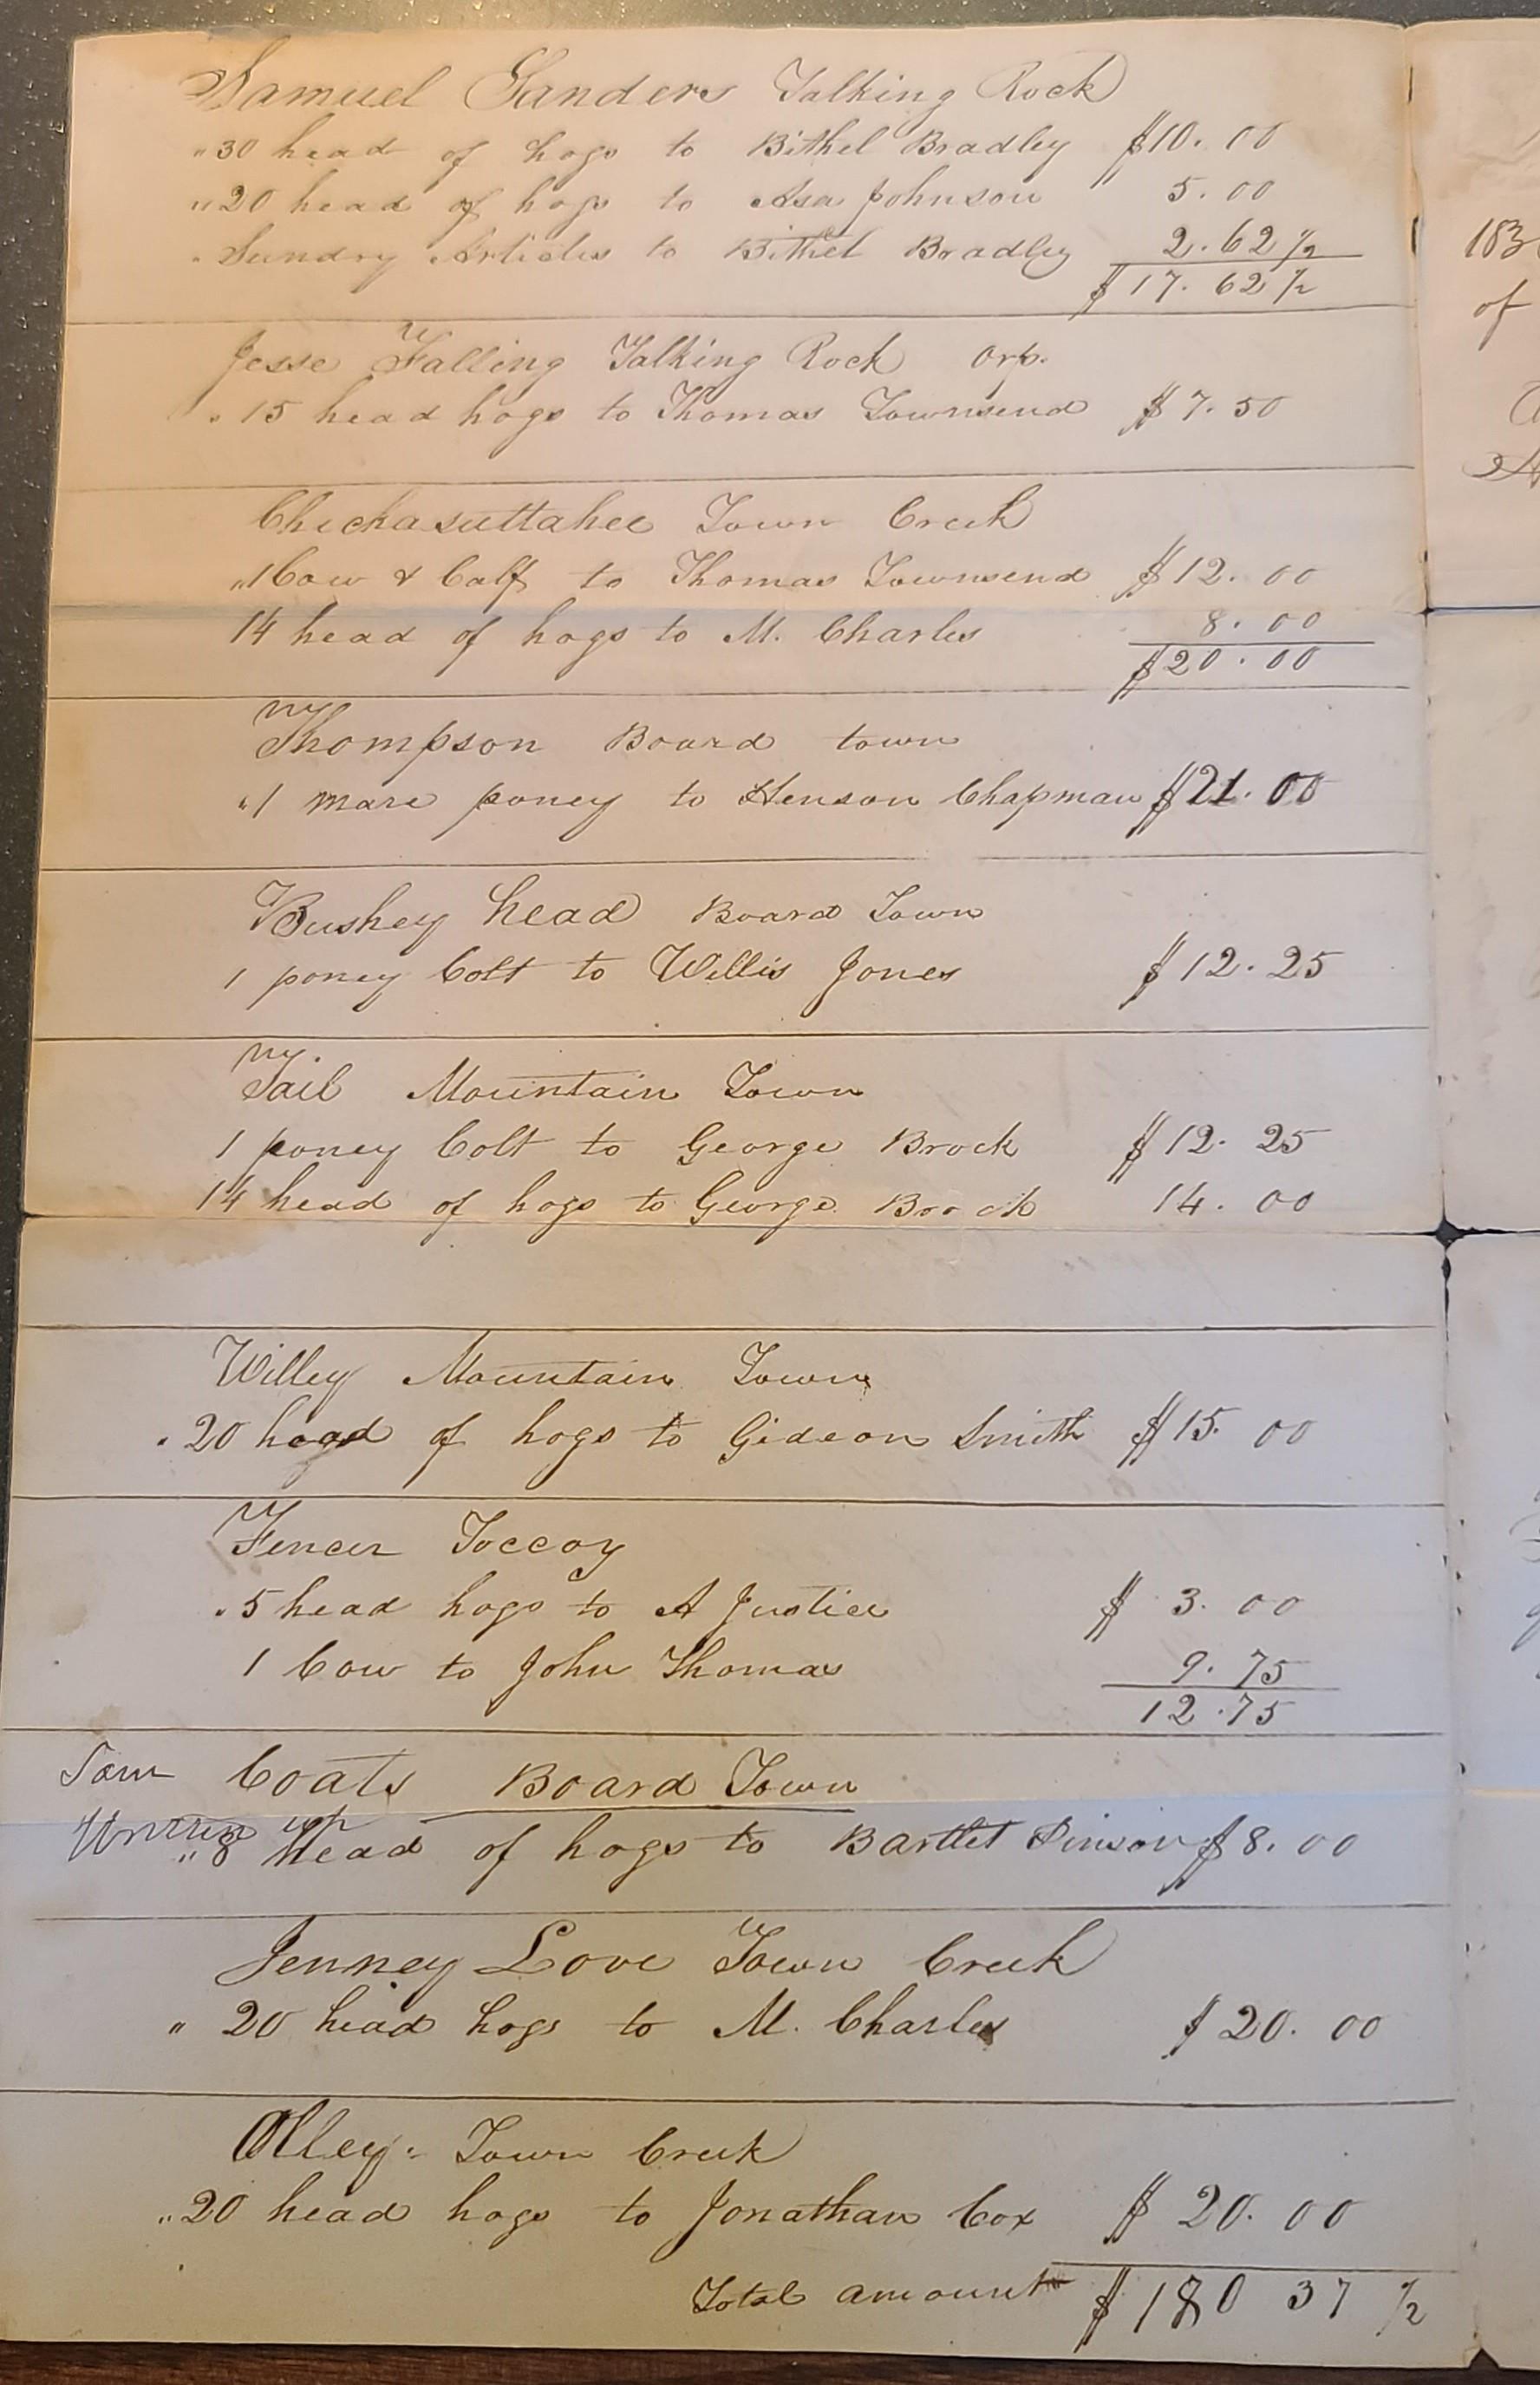 Samuel Sanders Talking Rock
" 30 head of hogs to Bithel Bradley $10.00
" 20 head of hogs to Asa Johnson 5.00
" Sundry Articles to Bithel Bradley 2.62 1/2
$17.62 1/2
Jesse Falling Talking Rock Orp.
" 15 head hogs to Thomas Townsend $7.50
183
of
Chickasuttahee Town Creek
" 1 Cow & Calf to Thomas Townsend $12.00
14 head of hogs to M. Charles 8.00
$20.00
Thompson Board town
" 1 mare poney to Henson Chapman $21.00
Bushey head Board Town
1 poney Colt to Willis Jones $12.25
Tail Mountain Town
1 poney Colt to George Brock $12.25
14 head of hogs to George Brock 14.00
Willey Mountain Town
" 20 head of hogs to Gideon Smith $15.00
Fencer Toccoy
" 5 head hogs to A Justice $3.00
1 Cow to John Thomas 9.75
12.75
Tom Coats Board Town
up
" 8 head of hogs to Bartlet Pinson $8.00
Jenney Love Town Creek
" 20 head hogs to M. Charles $20.00
Olley. Town Creek
" 20 head hogs to Jonathan Cox $20.00
Total amount $180 37 1/2